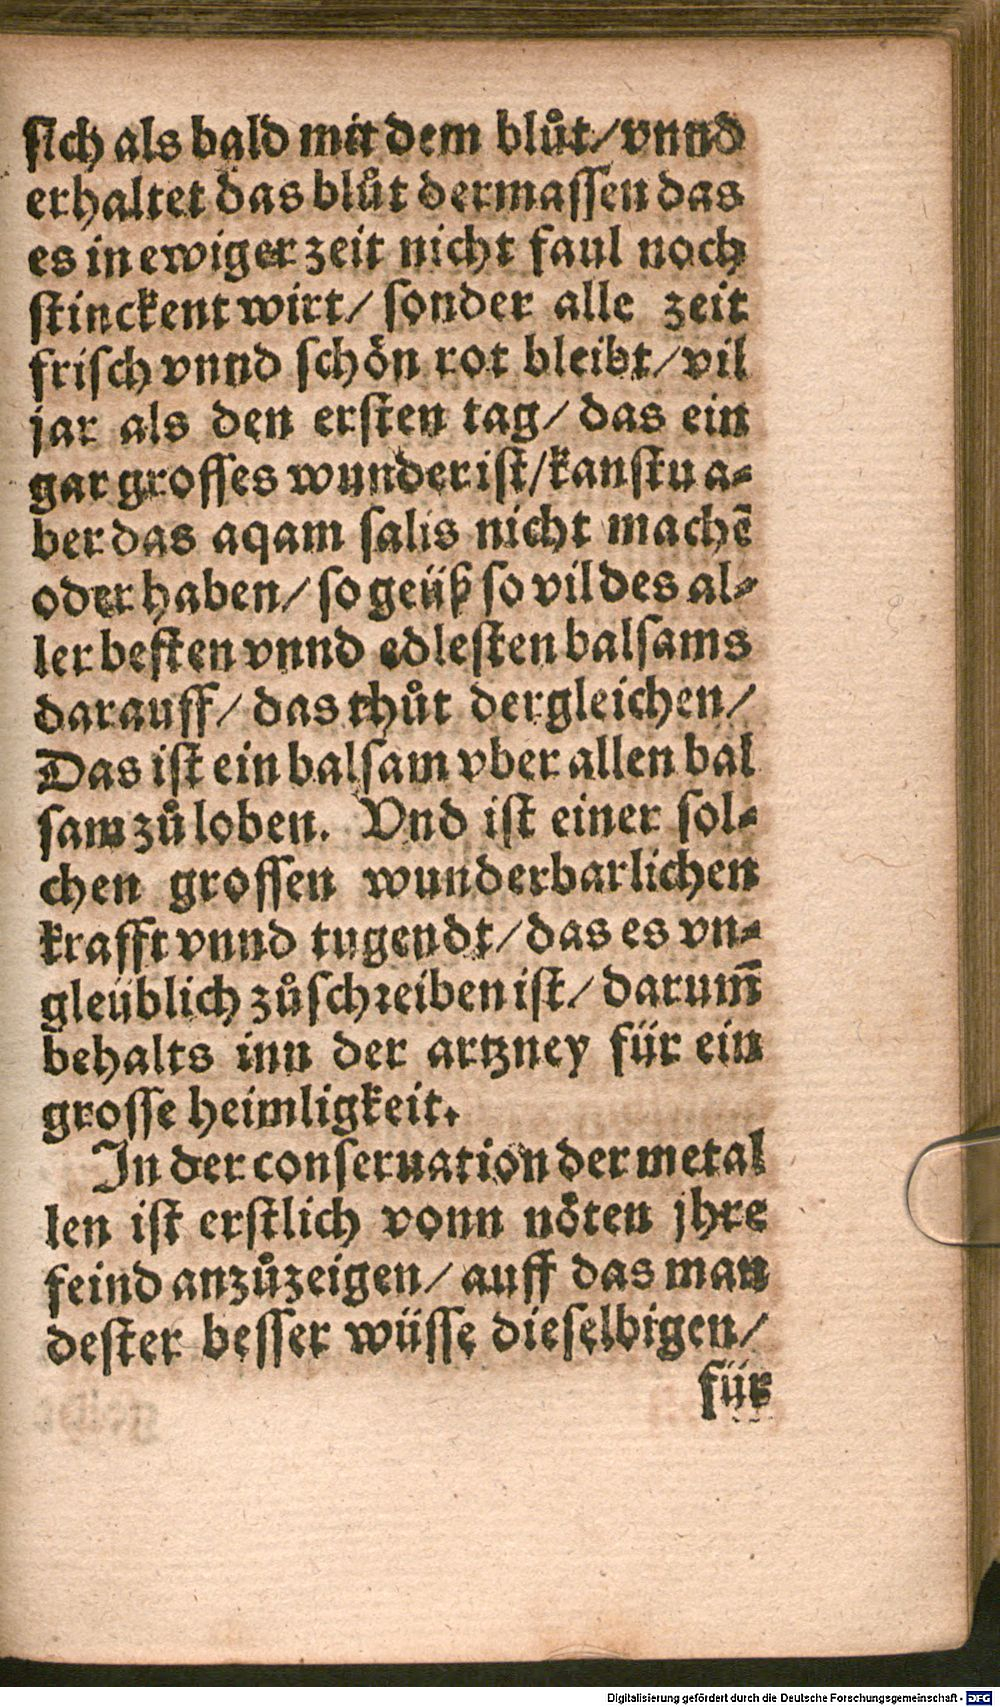 sich als bald mit dem blůt/ vnnd
erhaltet das blůt dermassen das
es in ewiger zeit nicht faul noch
stinckent wirt/ sonder alle zeit
frisch vnnd schön rot bleibt/ vil
jar als den ersten tag/ das ein
gar grosses wunder ist/ kanstu a-
ber das aqam salis nicht machē
oder haben/ so geüß so vil des al-
ler besten vnnd edlesten balsams
darauff/ das thůt dergleichen/
Das ist ein balsam vber allen bal
sam zů loben. Vnd ist einer sol-
chen grossen wunderbarlichen
krafft vnnd tugendt/ das es vn-
gleüblich zůschreiben ist/ darum̄
behalts inn der artzney für ein
grosse heimligkeit.
In der conseruation der metal
len ist erstlich vonn nöten jhre
feind anzůzeigen/ auff das man
dester besser wüsse dieselbigen/
für
Digitalisierung gefördert durch die Deutsche Forschungsgemeinschaft - DFG